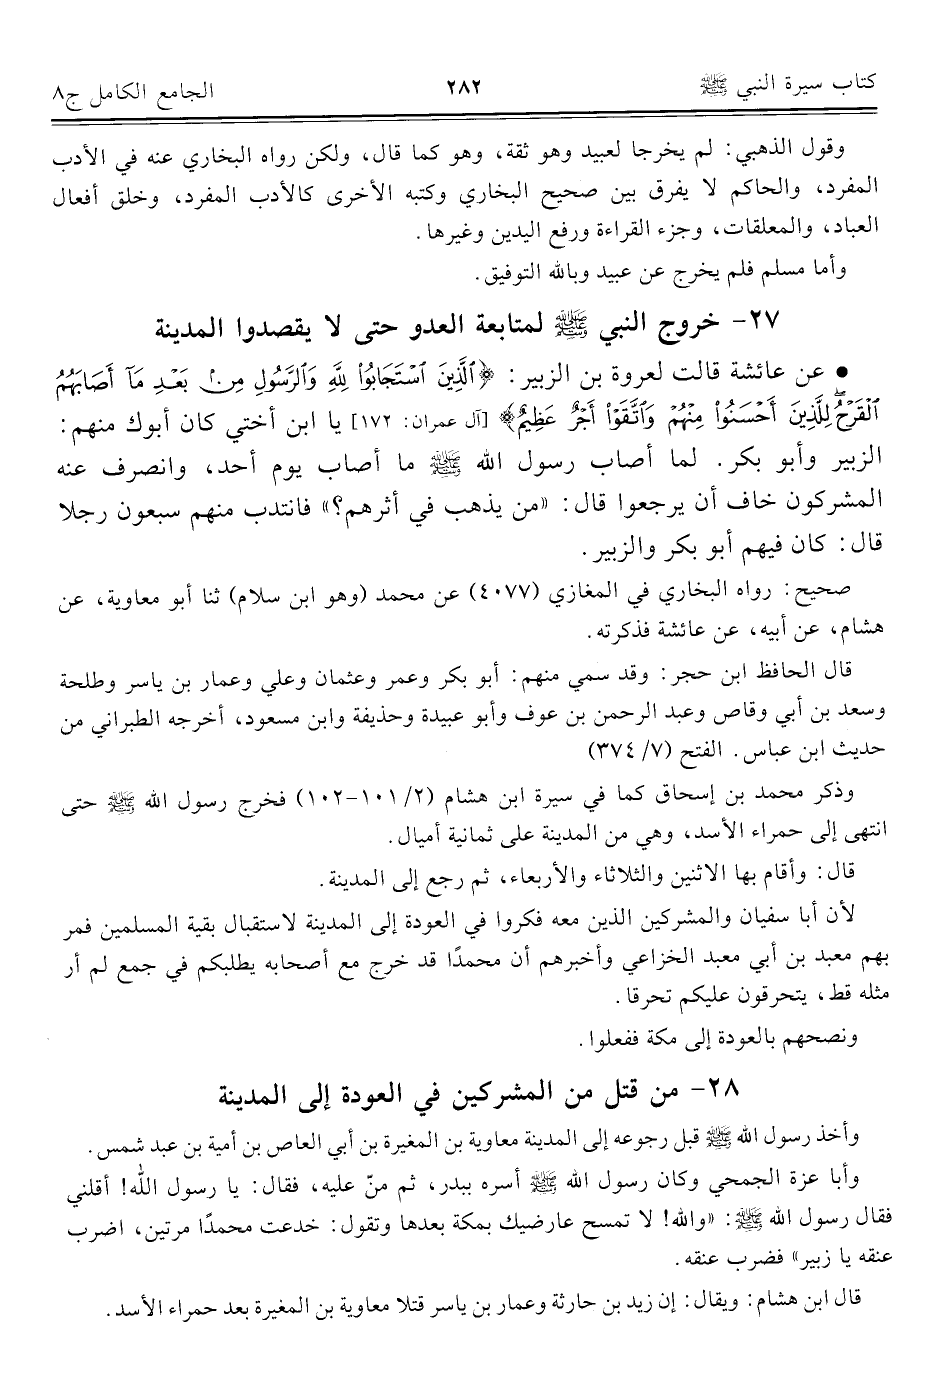 كتاب سيرة النبي ﷺ ٢٨٢ الجامع الكامل ج٨
وقول الذهبي: لم يخرجا لعبيد وهو ثقة، وهو كما قال، ولكن رواه البخاري عنه في الأدب
المفرد، والحاكم لا يفرق بين صحيح البخاري وكتبه الأخرى كالأدب المفرد، وخلق أفعال
العباد، والمعلقات، وجزء القراءة ورفع اليدين وغيرها.
وأما مسلم فلم يخرج عن عبيد وبالله التوفيق.
٢٧- خروج النبي ﷺ لمتابعة العدو حتى لا يقصدوا المدينة
• عن عائشة قالت لعروة بن الزبير: ﴿ٱلَّذِينَ ٱسْتَجَابُوا۟ لِلَّهِ وَٱلرَّسُولِ مِنۢ بَعْدِ مَآ أَصَابَهُمُ
ٱلْقَرْحُ ۚ لِلَّذِينَ أَحْسَنُوا۟ مِنْهُمْ وَٱتَّقَوْا۟ أَجْرٌ عَظِيمٌ﴾ [آل عمران: ١٧٢] يا ابن أختي كان أبوك منهم:
الزبير وأبو بكر. لما أصاب رسول الله ﷺ ما أصاب يوم أحد، وانصرف عنه
المشركون خاف أن يرجعوا قال: «من يذهب في أثرهم؟» فانتدب منهم سبعون رجلا
قال: كان فيهم أبو بكر والزبير.
صحيح: رواه البخاري في المغازي (٤٠٧٧) عن محمد (وهو ابن سلام) ثنا أبو معاوية، عن
هشام، عن أبيه، عن عائشة فذكرته.
قال الحافظ ابن حجر: وقد سمي منهم: أبو بكر وعمر وعثمان وعلي وعمار بن ياسر وطلحة
وسعد بن أبي وقاص وعبد الرحمن بن عوف وأبو عبيدة وحذيفة وابن مسعود، أخرجه الطبراني من
حديث ابن عباس. الفتح (٧/ ٣٧٤)
وذكر محمد بن إسحاق كما في سيرة ابن هشام (٢/ ١٠١-١٠٢) فخرج رسول الله ﷺ حتى
انتهى إلى حمراء الأسد، وهي من المدينة على ثمانية أميال.
قال: وأقام بها الاثنين والثلاثاء والأربعاء، ثم رجع إلى المدينة.
لأن أبا سفيان والمشركين الذين معه فكروا في العودة إلى المدينة لاستقبال بقية المسلمين فمر
بهم معبد بن أبي معبد الخزاعي وأخبرهم أن محمدًا قد خرج مع أصحابه يطلبكم في جمع لم أر
مثله قط، يتحرقون عليكم تحرقا.
ونصحهم بالعودة إلى مكة ففعلوا.
٢٨- من قتل من المشركين في العودة إلى المدينة
وأخذ رسول الله ﷺ قبل رجوعه إلى المدينة معاوية بن المغيرة بن أبي العاص بن أمية بن عبد شمس.
وأبا عزة الجمحي وكان رسول الله ﷺ أسره ببدر، ثم منّ عليه، فقال: يا رسول الله! أقلني
فقال رسول الله ﷺ: «والله! لا تمسح عارضيك بمكة بعدها وتقول: خدعت محمدًا مرتين، اضرب
عنقه يا زبير» فضرب عنقه.
قال ابن هشام: ويقال: إن زيد بن حارثة وعمار بن ياسر قتلا معاوية بن المغيرة بعد حمراء الأسد.